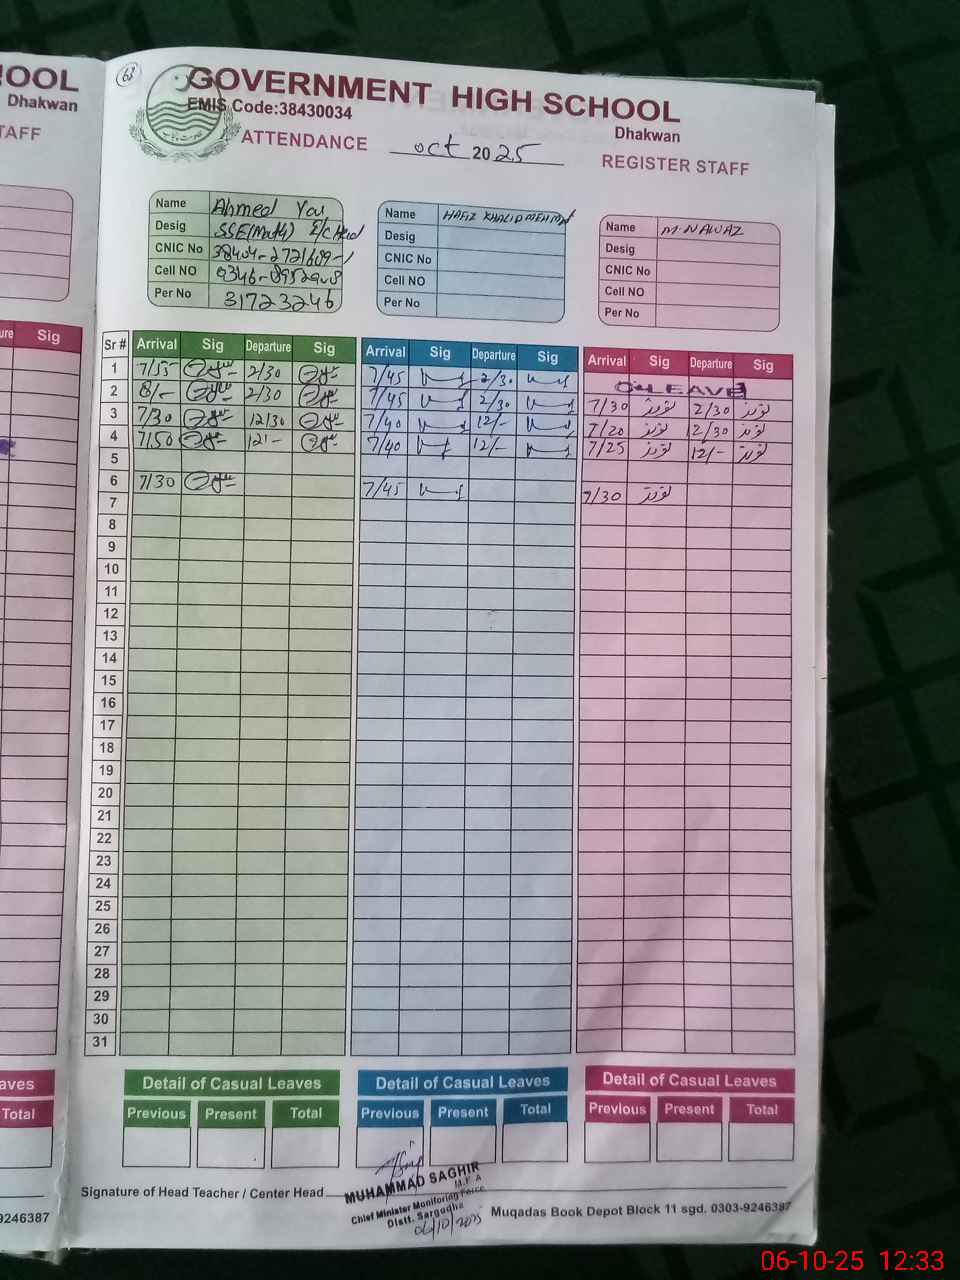 HOOL
Dhakwan
TAFF
63
GOVERNMENT HIGH SCHOOL
EMIS Code:38430034
Dhakwan
ATTENDANCE
oct 2025
REGISTER STAFF
Name Ahmed Yar
Desig SSE(Math) I/C Head
CNIC No 38404-2721609-1
Cell NO 0346-8952908
Per No 31723246
Name HAFIZ KHALID MEHMOOD
Desig
CNIC No
Cell NO
Per No
Name M. NAWAZ
Desig
CNIC No
Cell NO
Per No
ure Sig
Sr # Arrival Sig Departure Sig Arrival Sig Departure Sig Arrival Sig Departure Sig
1 7/55 2/30 7/45 2/30 ON LEAVE
2 8/- 2/30 7/45 2/30 7/30 2/30
3 7/30 12/30 7/40 12/- 7/20 12/30
4 7/50 12/- 7/40 12/- 7/25 12/-
5
6 7/30 7/45 7/30
7
8
9
10
11
12
13
14
15
16
17
18
19
20
21
22
23
24
25
26
27
28
29
30
31
aves
Total
Detail of Casual Leaves
Previous Present Total
Detail of Casual Leaves
Previous Present Total
Detail of Casual Leaves
Previous Present Total
Signature of Head Teacher / Center Head
MUHAMMAD SAGHIR
M.E.A
Chief Minister Monitoring Force
Distt. Sargodha
06/10/2025
9246387
Muqadas Book Depot Block 11 sgd. 0303-9246387
06-10-25 12:33